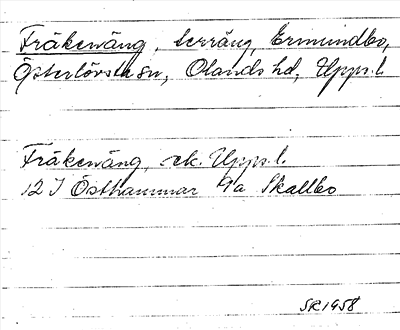 Fräkenäng, terräng, Ermundbo,
Österlövsta sn, Olands hd, Upps. l.
Fräkenäng, ek. Upps. l.
12 I Östhammar 9a Skallbo
SR 1958